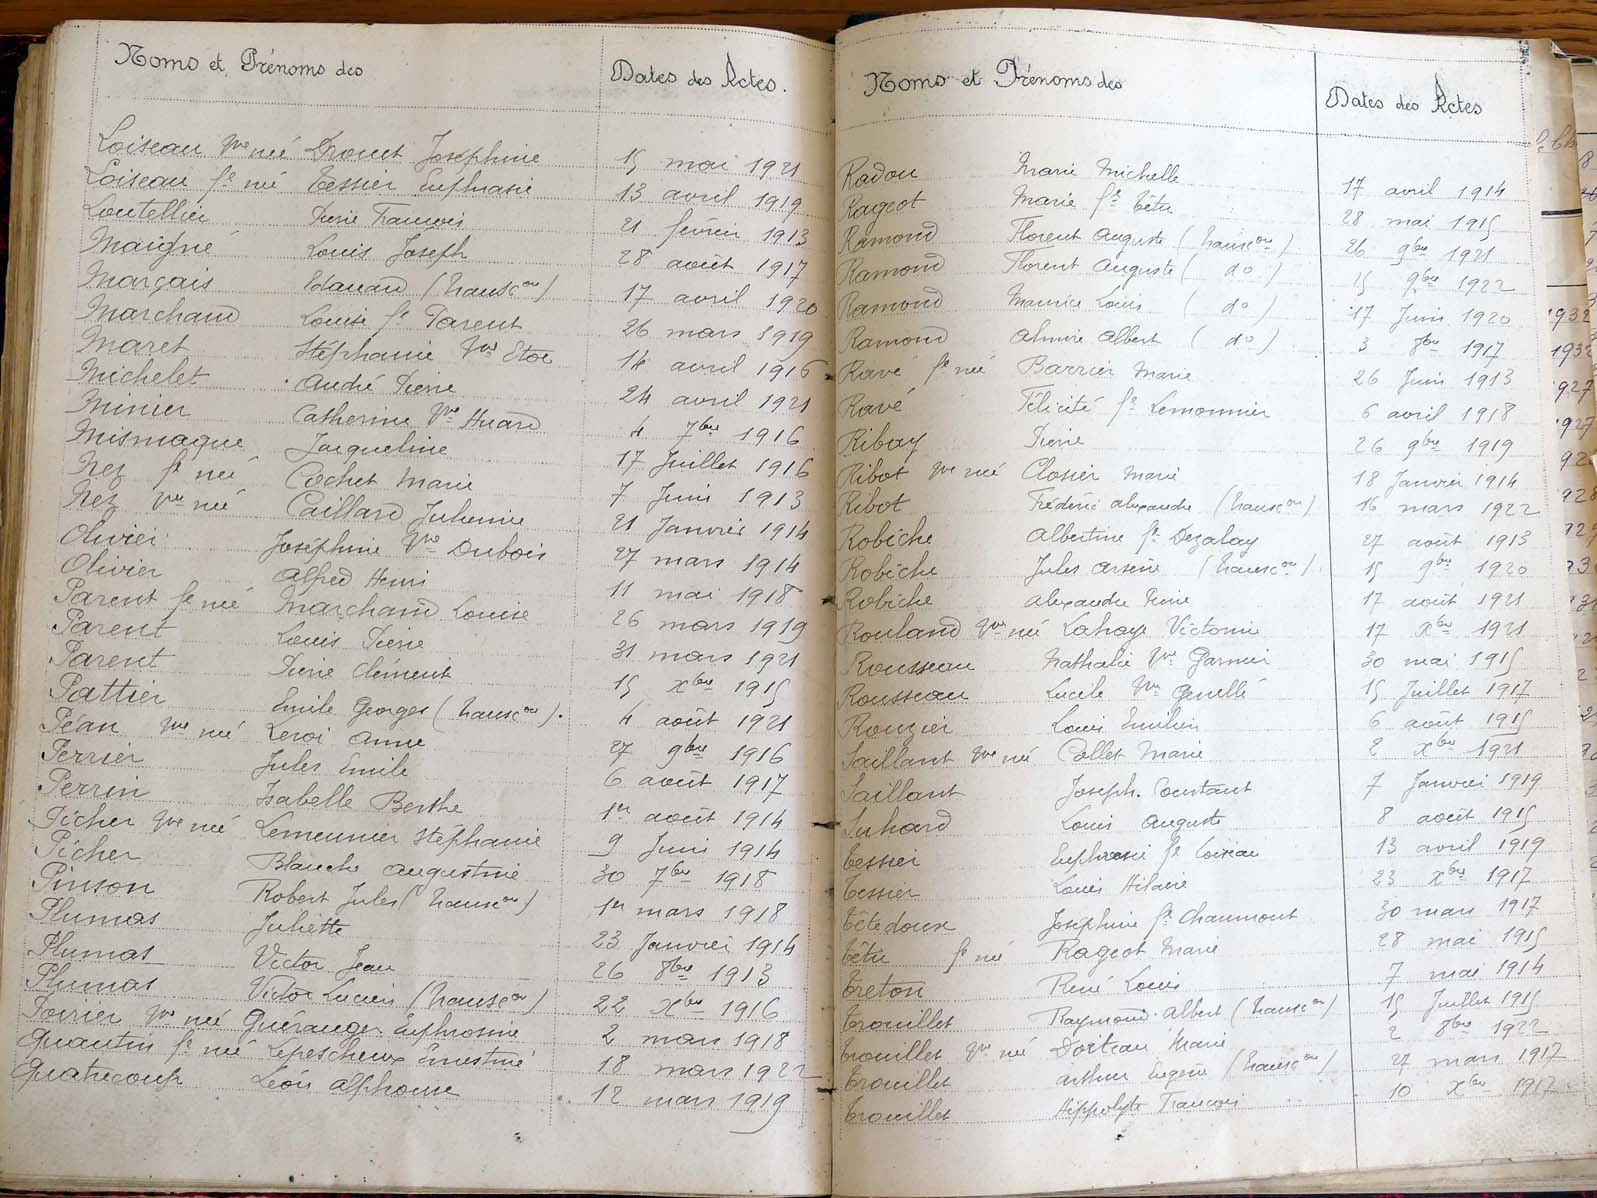 Noms et Prénoms des Dates des Actes.
Loiseau Vve née Drouet Joséphine 15 mai 1921
Loiseau fe née Tessier Euphrasie 13 avril 1919
Loutellier Pierre François 21 février 1913
Maigné Louis Joseph 28 août 1917
Marçais Edouard (transcon) 17 avril 1920
Marchand Louise fe Parent 26 mars 1919
Maret Stéphanie Vve Etoc 14 avril 1916
Michelet André Pierre 24 avril 1921
Minier Catherine Vve Huard 4 7bre 1916
Mismaque Jacqueline 17 Juillet 1916
Nez fe née Cochet Marie 7 Juin 1913
Nez Vve née Caillard Julienne 21 Janvier 1914
Olivier Joséphine Vve Dubois 27 mars 1914
Olivier Alfred Henri 11 mai 1918
Parent fe née Marchand Louise 26 mars 1919
Parent Louis Pierre 31 mars 1921
Parent Pierre Clément 15 Xbre 1915
Pattier Emile Georges (transcon). 4 août 1921
Péan Vve née Leroi Anne 27 9bre 1916
Perrier Jules Emile 6 août 1917
Perrin Isabelle Berthe 1er août 1914
Picher Vve née Lemeunier Stéphanie 9 Juin 1914
Picher Blanche Augustine 30 7bre 1918
Pinson Robert Jules (transcon) 1er mars 1918
Plumas Juliette 23 Janvier 1914
Plumas Victor Jean 26 8bre 1913
Plumas Victor Lucien (transcon) 22 Xbre 1916
Poirier Vve née Guéranger Euphrosine 2 mars 1918
Quantin fe née Lepescheux Ernestine 18 mars 1922
Quatrecoup Léon Alphonse 12 mars 1919
Noms et Prénoms des Dates des Actes
Radou Marie Michelle 17 avril 1914
Rageot Marie fe Têtu 28 mai 1915
Ramond Florent Auguste (transcon) 26 9bre 1921
Ramond Florent Auguste ( do ) 15 9bre 1922
Ramond Maurice Louis ( do ) 17 Juin 1920
Ramond Almire Albert ( do ) 3 8bre 1917
Ravé fe née Barrier Marie 26 Juin 1913
Ravé Félicité fe Lemonnier 6 avril 1918
Ribay Pierre 26 9bre 1919
Ribot Vve née Closier Marie 18 Janvier 1914
Ribot Frédéric Alexandre (transcon) 16 mars 1922
Robiche Albertine fe Dezalay 27 août 1913
Robiche Jules Arsène (transcon). 15 9bre 1920
Robiche Alexandre Pierre 17 août 1921
Rouland Vve née Lahaye Victorine 17 Xbre 1921
Rousseau Nathalie Vve Garnier 30 mai 1915
Rousseau Lucile Vve Genellé 15 Juillet 1917
Rouzier Louis Emilien 6 août 1915
Saillant Vve née Collet Marie 2 Xbre 1921
Saillant Joseph Constant 7 Janvier 1919
Suhard Louis Auguste 8 août 1915
Tessier Euphrasie fe Loiseau 13 avril 1919
Tessier Louis Hilaire 23 Xbre 1917
Têtedoux Joséphine fe Chaumont 30 mars 1917
Têtu fe née Rageot Marie 28 mai 1915
Treton René Louis 7 mai 1914
Trouillet Raymond Albert (transcon) 15 Juillet 1915
Trouillet Vve née Dorteau Marie 2 8bre 1922
Trouillet Arthur Eugène (transcon) 27 mars 1917
Trouillet Hippolyte François 10 Xbre 1917